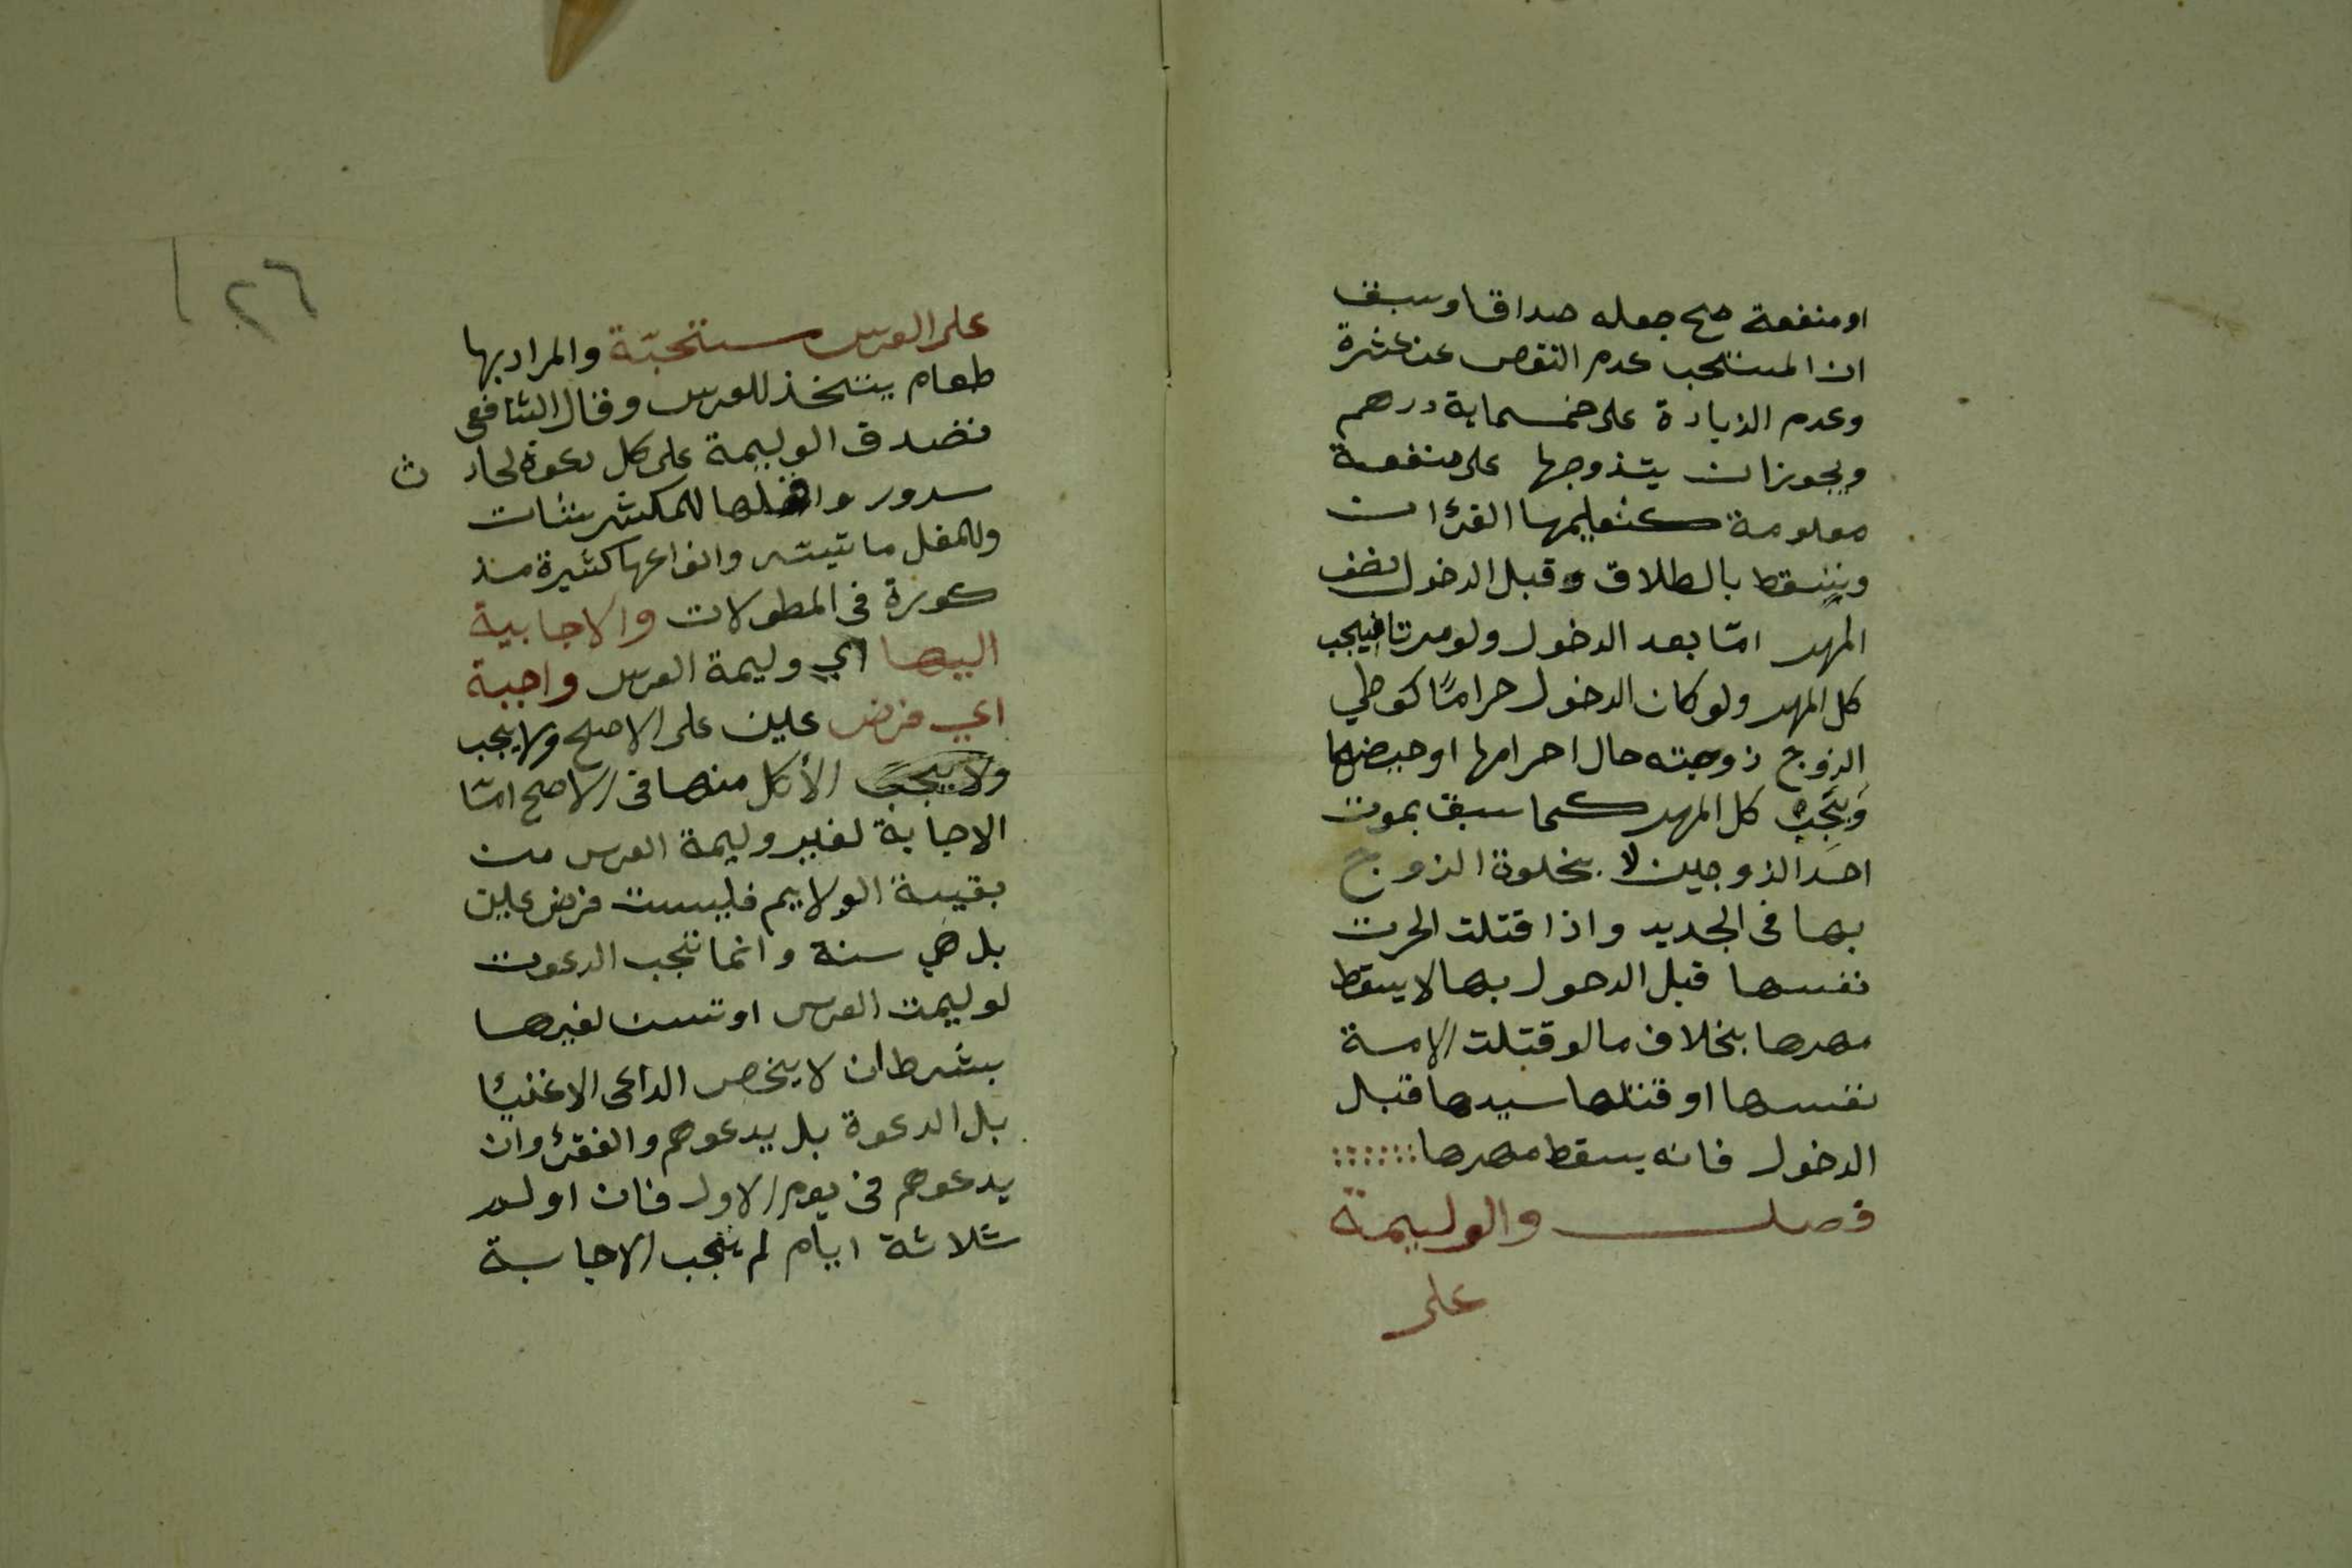 او منفعة صح جعله صداقا وسبق
ان المستحب عدم النقص عن عشرة
وعدم الزيادة على خمسماية درهم
ويجوز ان يتزوجها على منفعة
معلومة كتعليمها القرٔان
ويسقط بالطلاق وقبل الدخول نصف
المهر امّا بعد الدخول ولو مرتا فيجب
كل المهر ولو كان الدخول حرامًا كوطي
الزوج زوجته حال احرامها او حيضها
وَيَجِبُ كل المهر كما سبق بموت
احد الزوجين لا بخلوة الزوج
بها في الجديد واذا قتلت الحرت
نفسها قبل الدحول بها لا يسقط
مهرها بخلاف ما لو قتلت الامة
نفسها او قتلها سيدها قبل
الدخول فانه يسقط مهرها
فصل والوليمة
على
٢٦
على العرس مستحبّة والمراد بها
طعام يتخذ للعرس وقال الشافعي
تصدق الوليمة على كل دعوة لحاد ث
سرور واقلها للمكثر شات
وللمقل ما تيسّر وانواعها كثيرة مذ
كورة في المطولات والاجابية
اليها اي وليمة العرس واجبة
اي فرض عين على الاصح ولا يجب
ولا يجب الأكل منها في الاصح امّا
الاجابة لغير وليمة العرس من
بقية الولايم فليست فرض عين
بل هي سنة وانما تجب الدعوت
لوليمت العرس او تسن لغيرها
بشرط ان لا يخص الداعى الاغنئا
بل الدعوة بل يدعوهم والفقرٔ وان
يدعوهم في يوم الاول فان اولم
ثلاثة ايام لم تجب الاجابة